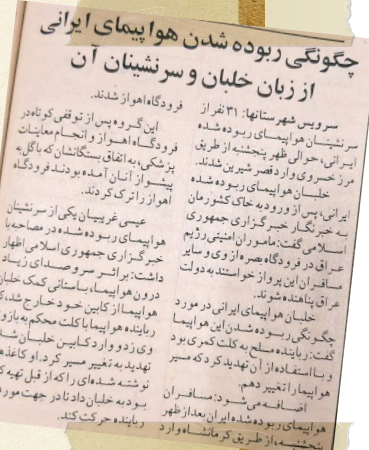 چگونگی ربوده شدن هواپیمای ایرانی
از زبان خلبان و سرنشینان آن
سرویس شهرستانها: ۳۱ نفر از
سرنشینان هواپیمای ربوده شده
ایرانی، حوالی ظهر پنجشنبه از طریق
مرز خسروی وارد قصرشیرین شدند.
خلبان هواپیمای ربوده شده
ایرانی، پس از ورود به خاک کشورمان
به خبرنگار خبرگزاری جمهوری
اسلامی گفت: ماموران امنیتی رژیم
عراق در فرودگاه بصره از وی و سایر
مسافران این پرواز خواستند به دولت
عراق پناهنده شوند.
خلبان هواپیمای ایرانی در مورد
چگونگی ربوده شدن این هواپیما
گفت: رباینده مسلح به کلت کمری بود
و با استفاده از آن تهدید کرد که مسیر
هواپیما را تغییر دهم.
اضافه می‌شود: مسافران
هواپیمای ربوده شده ایران بعدازظهر
پنجشنبه، از طریق کرمانشاه وارد
فرودگاه اهواز شدند.
این گروه پس از توقفی کوتاه در
فرودگاه اهواز و انجام معاینات
پزشکی، به اتفاق بستگانشان که با گل به
پیشواز آنان آمده بودند فرودگاه
اهواز را ترک کردند.
عیسی غریبیان یکی از سرنشینان
هواپیمای ربوده شده در مصاحبه با
خبرگزاری جمهوری اسلامی اظهار
داشت: بر اثر سر و صدای زیاد
درون هواپیما، با ستانی کمک خلبان
هواپیما از کابین خود خارج شد،
رباینده هواپیما با کلت محکم به بازو
وی زد و وارد کابین خلبان شد
تهدید به تغییر مسیر کرد. او کاغذ
نوشته شده‌ای را که از قبل تهیه
بود به خلبان داد تا در جهت مورد
رباینده حرکت کند.